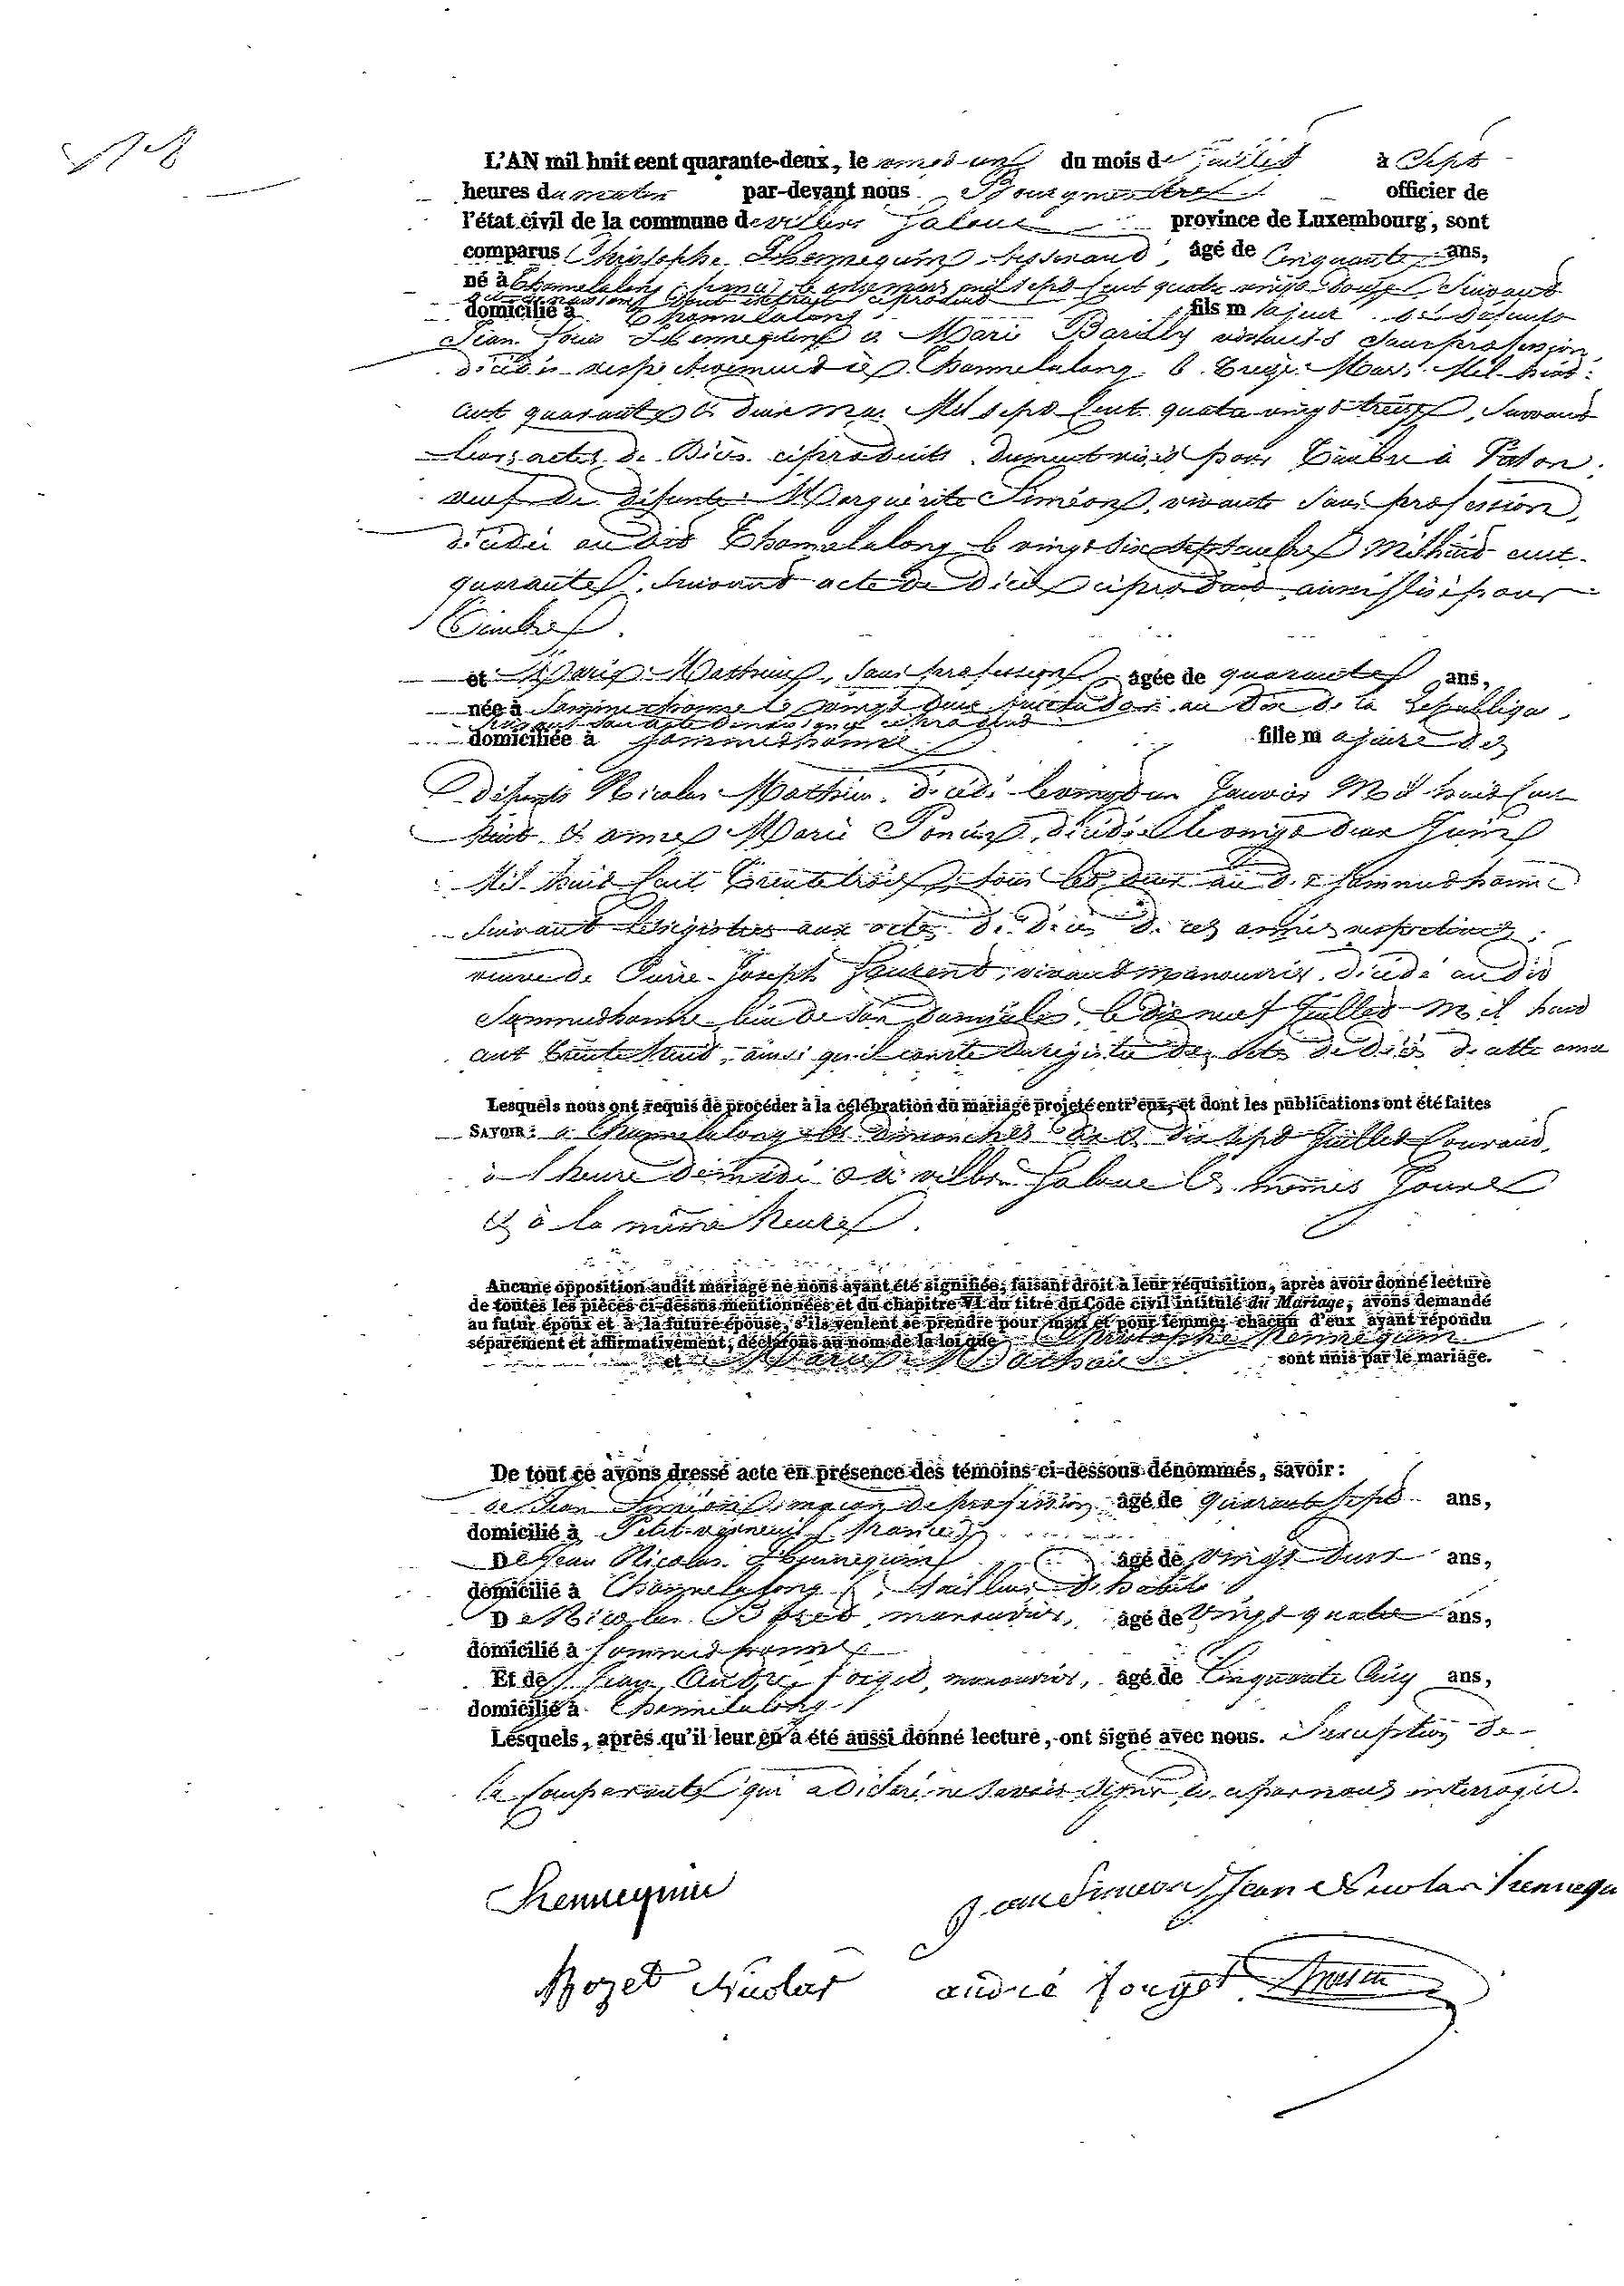 N 8
L'AN mil huit cent quarante-deux, le vingt-un du mois de juillet à Sept
heures du matin par-devant nous Bourgmestre officier de
l'état civil de la commune de villers la loue province de Luxembourg, sont
comparus Christophe Hennequin, tisserand, âgé de Cinquante ans,
né à Chonnelalong mars mil sept Cent quatre vingt douze, Suivant
domicilié à Chonnelalong fils majeur de défunts
Jean Louis Hennequin et Marie vivants Sans profession,
décédés respectivement à Chonnelalong le treize Mars Mil huit
cent quarante et deux mai Mil sept Cent quatre vingt treize, Suivant
leurs actes de Décès ci produits, dument visés pour timbre à Virton,
veuf de défunte Marguerite Siméon, vivante Sans profession,
décédée au dit Chonnelalong le vingt Six Septembre Mil huit cent
quarante, Suivant acte de Décès ci produit aussi visé pour
timbre.
et Marie Mathieu, Sans profession âgée de quarante ans,
née à Sommethonne le vingt deux an Dix de la République,
suivant son acte de naissance ci produit
domiciliée à Sommethonne fille majeure des
défunts Nicolas Mathieu, décédé le vingt un Janvier Mil huit Cent
huit et Marie Poncin, décédée le vingt deux Juin
Mil huit Cent trente trois, tous les deux au dit Sommethonne
Suivant les registres aux actes de décès de ces années respectives,
veuve de Pierre-Joseph Laurent, vivant manouvrier, décédé au dit
Sommethonne lieu de Son Domicile, le dix neuf Juillet Mil huit
cent trente huit, ainsi qu'il conste du registre des actes de décès de cette année
Lesquels nous ont requis de procéder à la célébration du mariage projeté entr'eux, et dont les publications ont été faites
SAVOIR: à Chonnelalong les dimanches dix et dix sept Juillet Courant,
à l'heure de midi et à villers la loue les mêmes Jours
et à la même heure.
Aucune opposition audit mariage ne nous ayant été signifiée, faisant droit à leur réquisition, après avoir donné lecture
de toutes les pièces ci-dessus mentionnées et du chapitre VI du titre du Code civil intitulé du Mariage, avons demandé
au futur époux et à la future épouse, s'ils veulent se prendre pour mari et pour femme; chacun d'eux ayant répondu
séparément et affirmativement, déclarons au nom de la loi que Christophe Hennequin
et Marie Mathieu sont unis par le mariage.
De tout ce avons dressé acte en présence des témoins ci-dessous dénommés, savoir:
de Jean Siméon, maçon de profession, âgé de quarante sept ans,
domicilié à Petit-verneuil (france)
De Jean Nicolas Hennequin âgé de vingt deux ans,
domicilié à Chonnelalong, tailleur d'habits
De Nicolas Rozet, manouvrier, âgé de vingt quatre ans,
domicilié à Sommethonne
Et de Jean André Forget, manouvrier, âgé de Cinquante Cinq ans,
domicilié à Chonnelalong
Lesquels, après qu'il leur en a été aussi donné lecture, ont signé avec nous. Exception de
la Comparante qui a déclaré ne savoir Signer de ce par nous interrogée.
Hennequin
Jean Simeon Jean Nicolas Hennequin
Rozet Nicolas andré forget